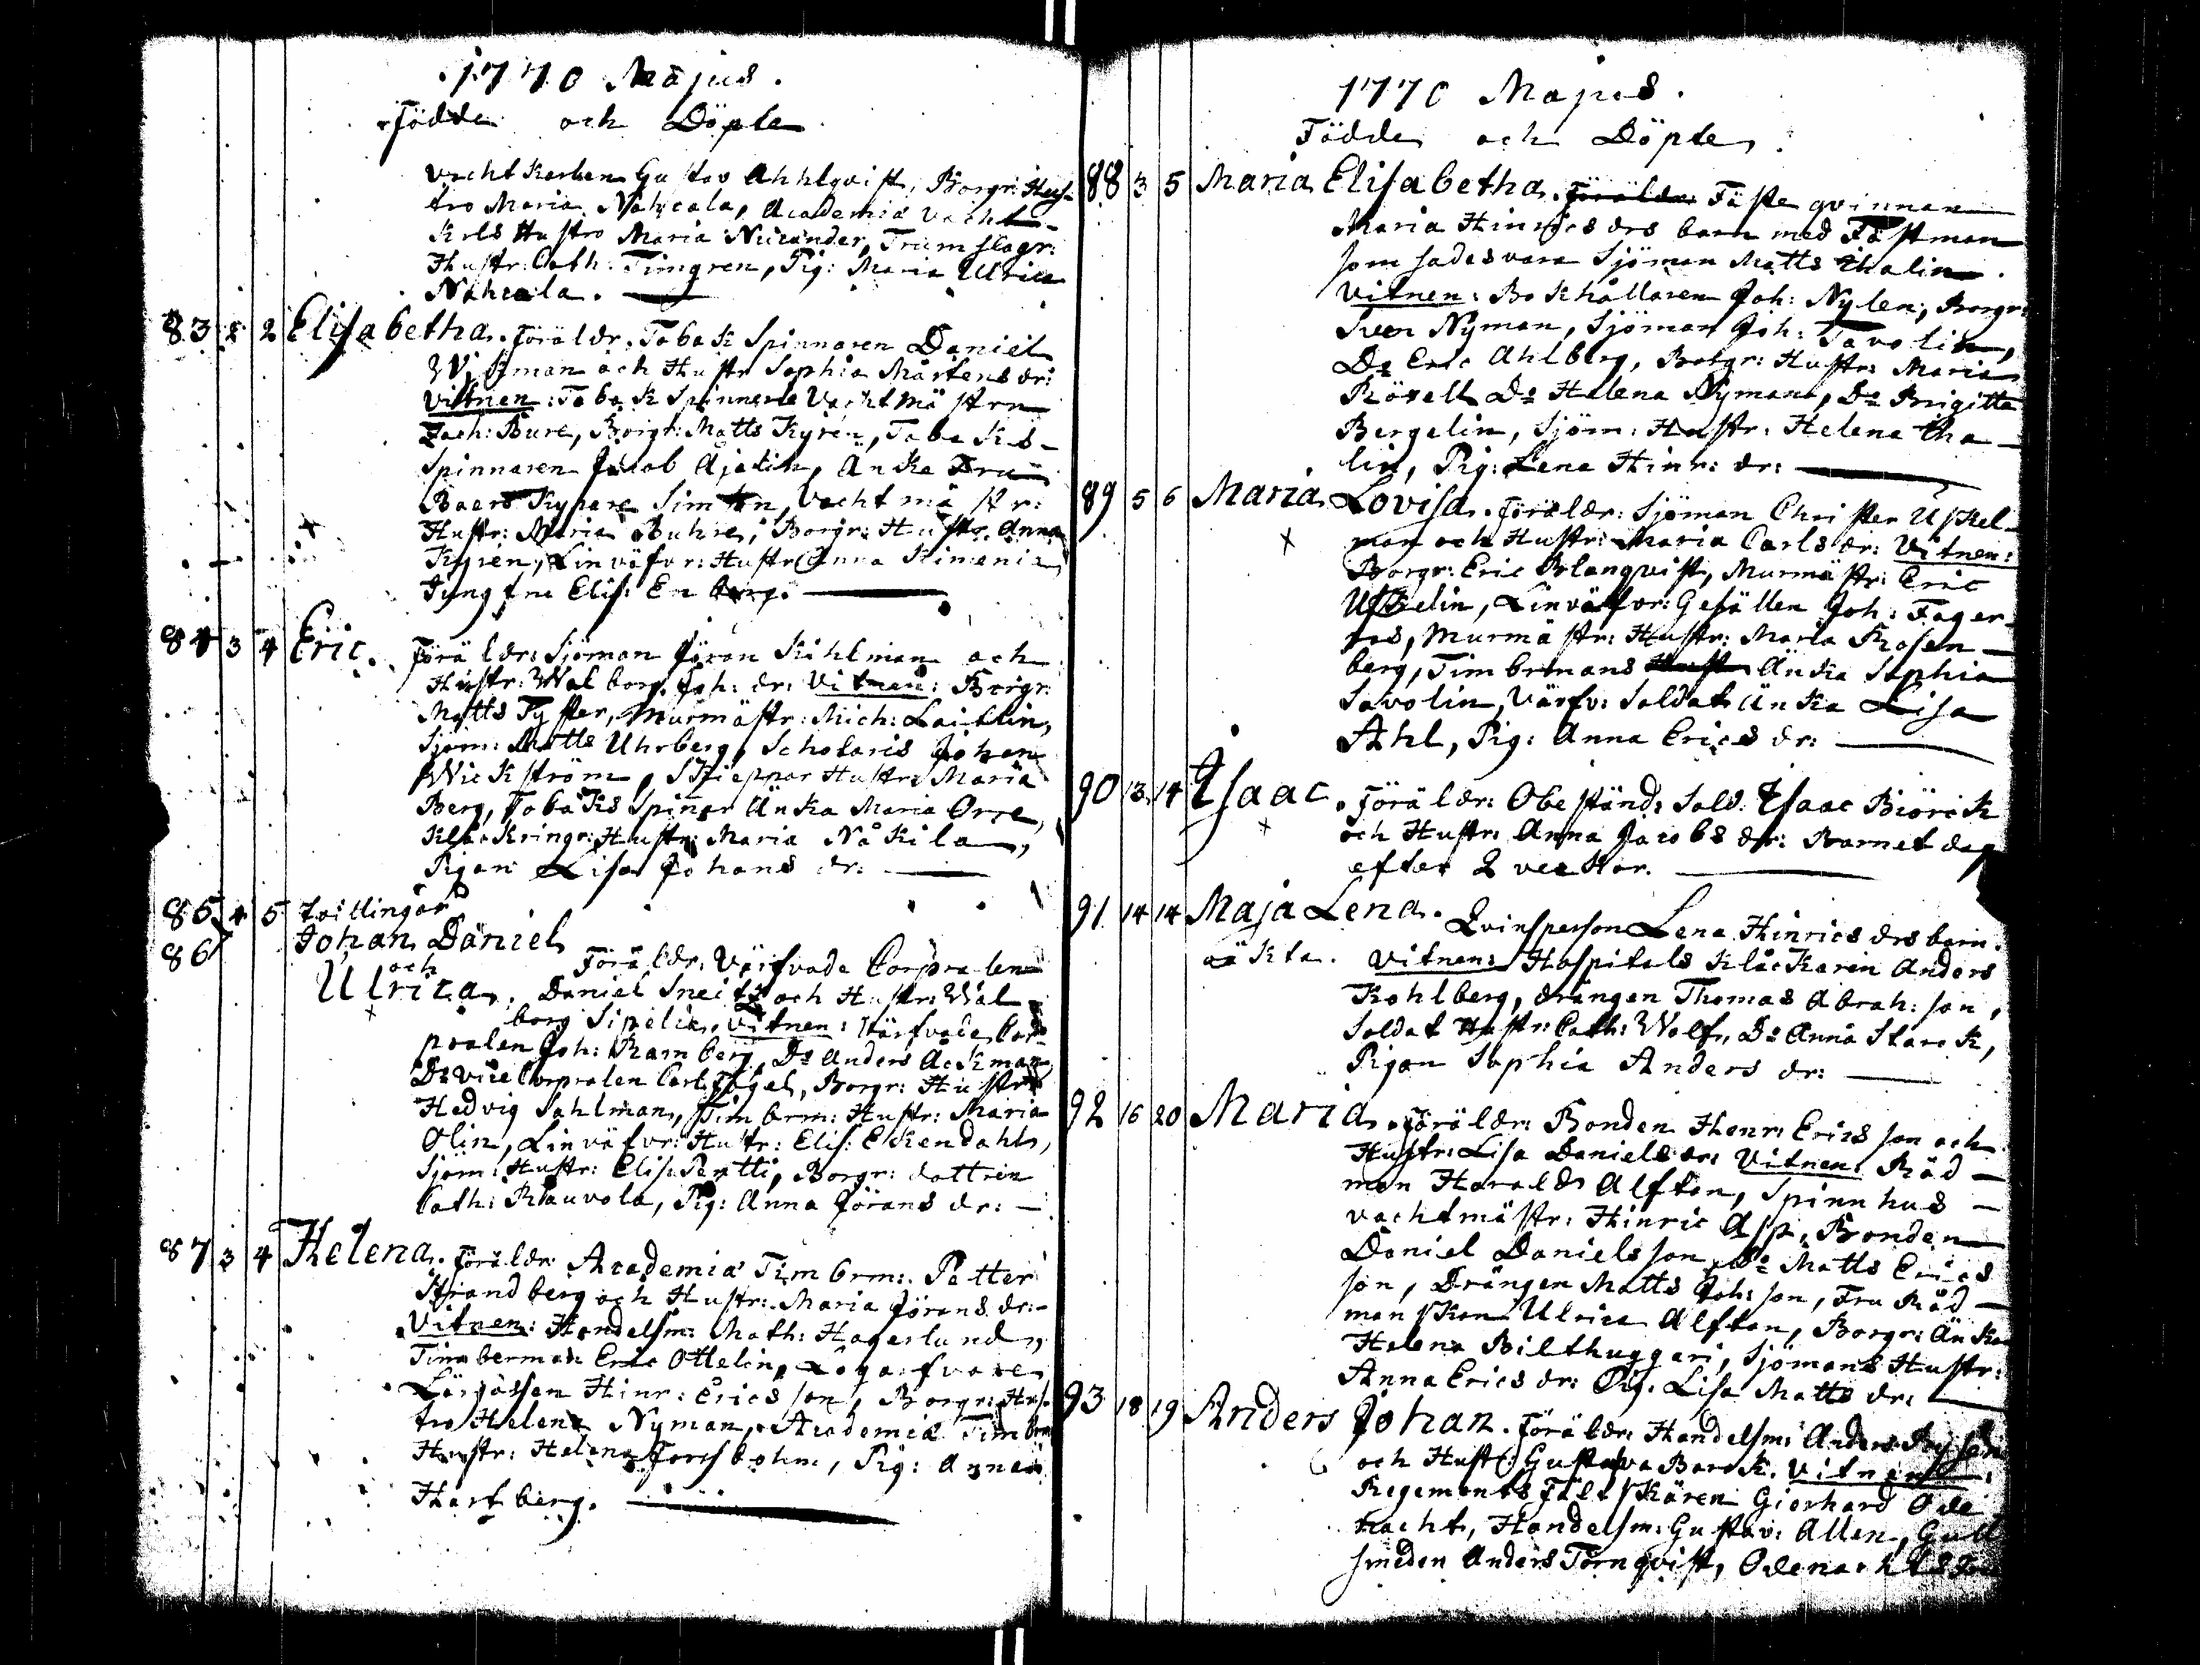 1770 Majus.
Födde och Döpte
vacht Karlen Gustav Ahhlqvist, Borgr: Hus-
tro Maria Nahcala, Academiæ Vacht-
Karls Hustro Maria Nicander, Trumslagr:
Hustr: Cath: Timgren, Pig: Maria Ulrica
Nahcala.
83 2 Elisabetha. Föräldr. Tobak Spinnaren Daniel
Wikman och Hustr Sophia Mårtens dr:
Vittnen: Tobak Spinnerie Vachtmästren
Zach: Bure, Borgr: Matts Kyren, Tobaks-
Spinnaren Jacob Ajalin, Änka Fru
Baers Kypare Simton, Vachtmästr:
Hustr: Maria Buhre, Borgr: Hustr. Anna
Kyren, Linväfvr: Hustr Anna Kimenia
Jungfru Elis: Enberg.
84 3 4 Eric. Föräldr: Sjöman Jöran Kihlman och
Hustr: Walborg Joh: dr: Vitnen: Borgr:
Matts Tyster, Murmästr: Mich: Laitlin,
Sjöm: Matts Uhrberg, Scholaris Johan
Wickström, Skieppar Hustr: Maria
Berg, Tobaks Spinar Änka Maria Orre,
Klåckringr: Hustr: Maria Nåkila,
Pigan Lisa Johans dr:
85 4 5 tvillingar
86 Johan Daniel
och Föräldr: Värfvade Corpralen
Ulrica. Daniel Sneitz och Hustr: Wal
borg Sipelia. Vitnen: Värfvade Cor
pralen Joh: Ramberg, Do Anders Åckman,
Do Vice Corpralen Carl Fogel, Borgr: Hustr
Hedvig Sahlman, Timbrm: Hustr: Maria
Olin, Linväfvr: Hustr: Elis: Ekendahl,
Sjöm: Hustr: Elis: Pertti, Borgr: dottren
Cath: Rauvola, Pig: Anna Jörans dr:
87 3 4 Helena. Föräldr: Academiæ Timbrm: Petter
Strandberg och Hustr: Maria Jörans dr:
Vitnen: Handelsm: Math: Hagerlund,
Timberman Eric Ottelin, Logarfvare
Lärgåssen Hinr: Ericsson, Borgr: Hus-
tro Helena Nyman, Academiæ Timbrm
Hustr: Helena Forsbohm, Pig: Anna
Hartberg.
1770 Majus.
Födde och Döpte
88 3 5 Maria Elisabetha. Föräldr: Fästeqvinnan
Maria Hinrics drs barn med Fästman
som sades vara Sjöman Matts Thalin.
Vitnen: Bokhållaren Joh: Nylen, Borgr:
Sven Nyman, Sjöman Joh: Tavolin,
Do Eric Ahlberg, Borgr: Hustr: Maria
Rövell Do Helena Nyman, Do Brigitta
Bergelin, Sjöm: Hustr: Helena Tha-
lin, Pig: Lena Hinr: dr:
89 5 6 Maria Lovisa. Föräldr: Sjöman Christer Uskel-
man och Hustr: Maria Carls dr: Vitnen:
Borgr: Eric Blanqvist, Murmästr: Eric
Uskelin, Linväfvr: Gesällen Joh: Fager-
ros, Murmästr: Hustr: Maria Rosen-
berg, Timbrmans Änka Sophia
Savolin, Värfv: Soldat Änka Lisa
Ahl, Pig: Anna Erics dr:
90 13 14 Isaac. Föräldr: Obeständ: Sold: Isaac Biörck
och Hustr: Anna Jacobs dr: Barnet dog
efter 2 veckor.
91 14 14 Maja Lena. Qvinsperson Lena Hinrics drs barn.
oäkta. Vitnen: Hospitals Klåckaren Anders
Kohlberg, drängen Thomas Abrah: son,
Soldat Hustr: Cath: Wolf, Do Anna Starck,
Pigan Sophia Anders dr:
92 16 20 Maria. Föräldr: Bonden Henr: Ericsson och
Hustr: Lisa Daniels dr: Vitnen: Råd-
man Harald Alftan, Spinnhus-
vachtmästr: Hinric Asp, Bonden
Daniel Danielsson, Do Matts Erics
son, Drängen Matts Joh: son, Fru Råd-
manskan Ulrica Alftan, Borgr: Änka
Helena Bilthuggari, Sjömans Hustr:
Anna Erics dr: Pig: Lisa Matts dr:
93 18 19 Anders Johan. Föräldr: Handelsm: Anders
och Hustr: Gustava Barck. Vitnen:
Regements Fältskären Gierhard Ode
nacht, Handelsm: Gustav: Allen, Gull
smeden Anders Törnqvist, Odenachts Fru